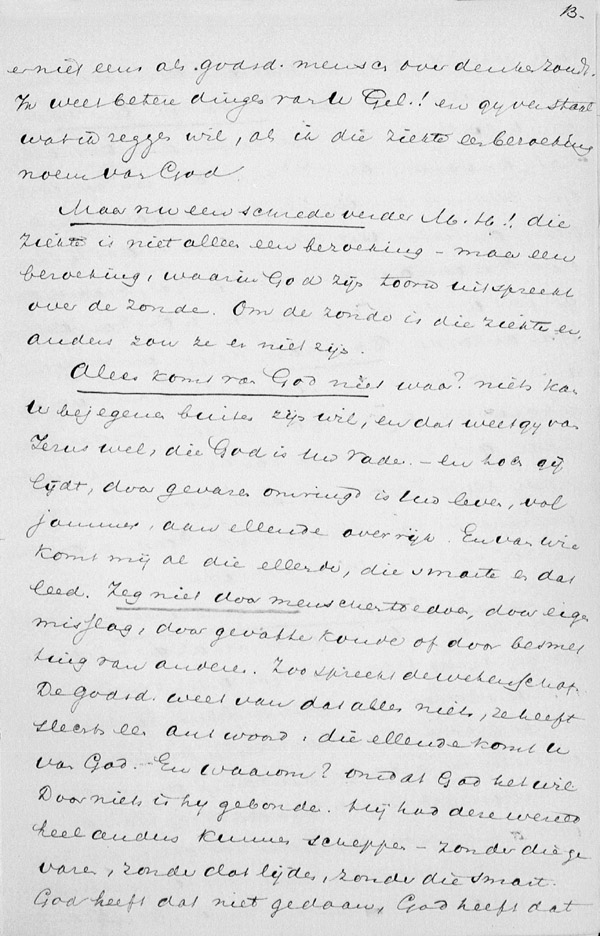 13.
er niet eens als godsd. mensch over denken zoudt.
Ik weet betere dingen van U Gel.! en gy verstaat
wat ik zeggen wil, als ik die ziekte een bezoeking
noem van God.
Maar nu een schrede verder M. H.! die
ziekte is niet alleen een bezoeking – maar een
bezoeking, waarin God zijn toorn uitspreekt
over de zonde. Om de zonde is die ziekte er,
anders zou ze er niet zijn.
Alles komt van God niet waar? niets kan
U bejegenen buiten zijn wil, en dat weet gy van
Jezus wel, die God is Uw Vader. – en toch gij
lijdt, door gevaren omringd is Uw leven, vol
jammer, aan ellende overrijk. En van wie
komt mij al die ellende, die smarte en dat
leed. Zeg niet door menschen toedoen, door eigen
misslag, door gevatte koude of door besmet
ting van anderen. Zoo spreekt de wetenschap.
De godsd. weet van dat alles niets, ze heeft
slechts een antwoord, die ellende komt U
van God. – En waarom? omdat God het wil
Door niets is hy gebonden. Hij had deze wereld
heel anders kunnen scheppen – zonder die ge
varen, zonder dat lijden, zonder die smart.
God heeft dat niet gedaan, God heeft dat